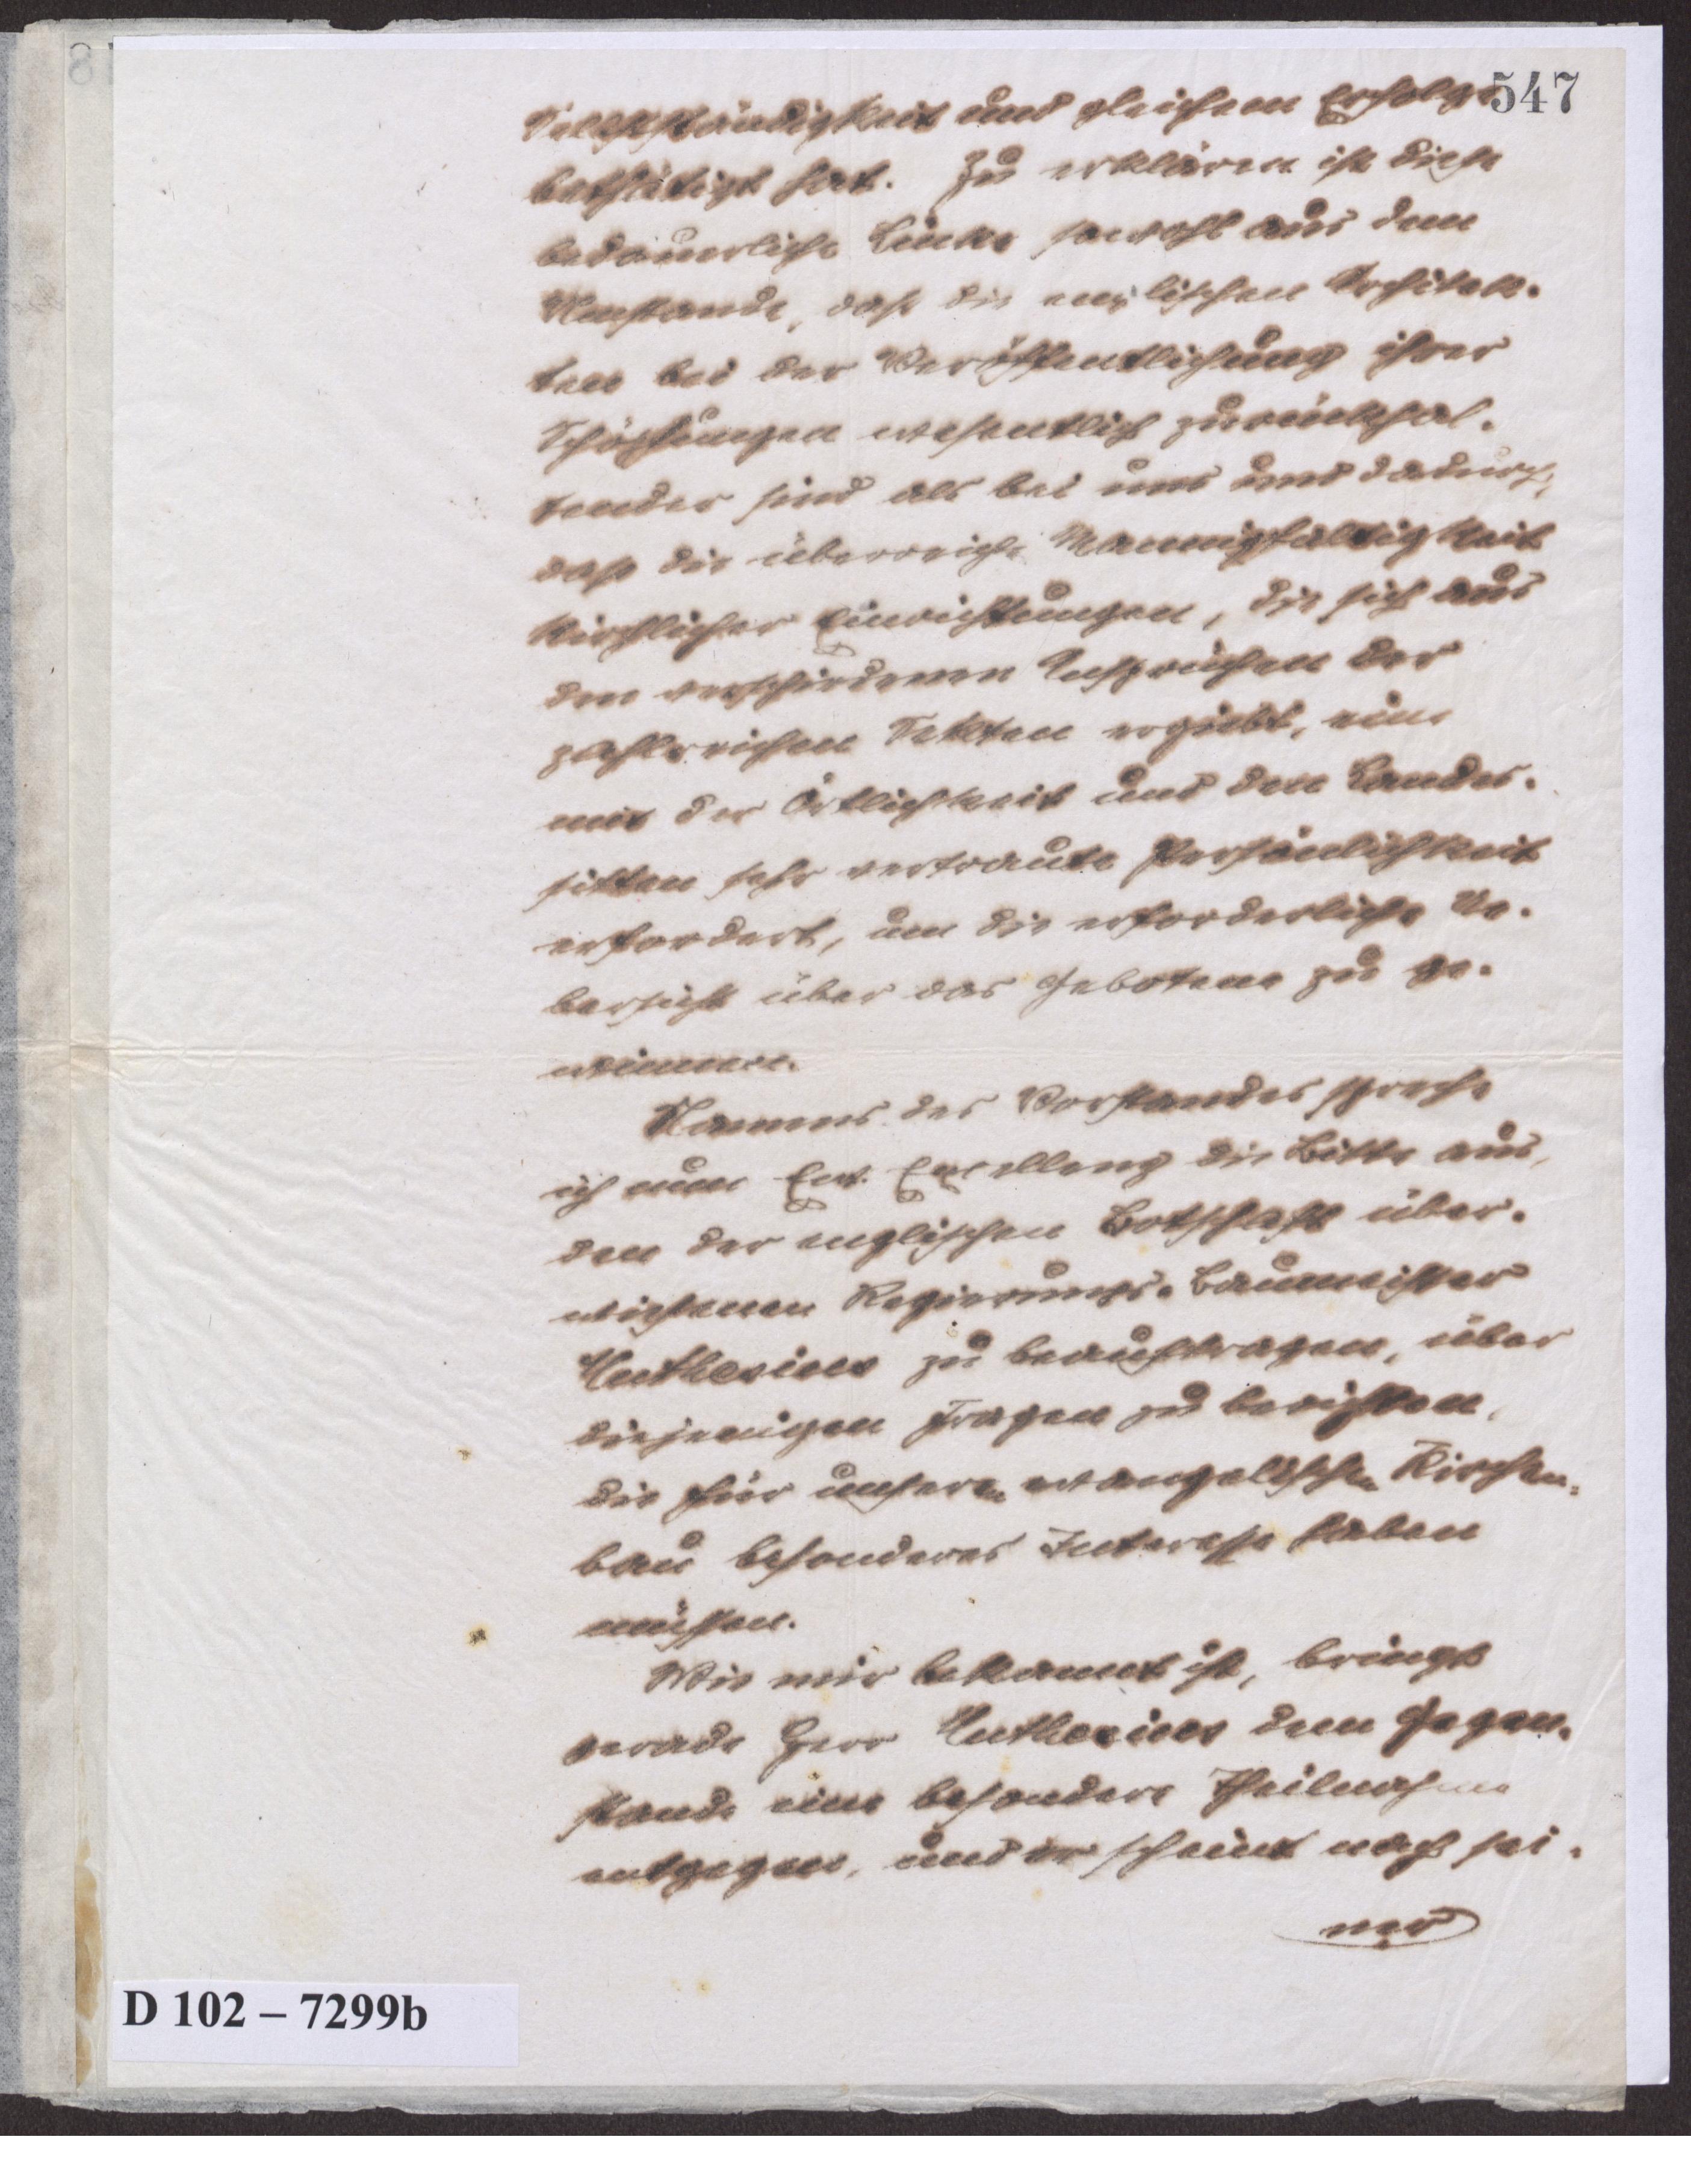 547
Selbstständigkeit und gleichem Erfolge
bethätigt hat. Zu erklären ist diese
bedauerliche Lücke sowohl aus dem
Umstande, dass die englischen Architek-
ten bei der Veröffentlichung ihrer
Schöpfungen wesentlich zurückhal-
tender sind als bei uns und dadurch,
dass die überreiche Mannigfaltigkeit
kirchlicher Einrichtungen, die sich aus
den verschiedenen Ansprüchen der
zahlreichen Sekten ergiebt, eine
mit der Örtlichkeit und den Landes-
sitten sehr vertraute Persönlichkeit
erfordert, um die erforderliche Ue-
bersicht über das Gebotene zu ge-
winnen.
Namens des Vorstandes spreche
ich nun Ew. Excellenz die Bitte aus,
den der englischen Botschaft über-
wiesenen Regierungs-Baumeister
Muthesius zu beauftragen, über
diejenigen Fragen zu berichten,
die für unseren evangelischen Kirchen-
bau besonderes Interesse haben
müssen.
Wie mir bekannt ist, bringt
gerade Herr Muthesius dem Gegen-
stande eine besondere Theilnahme
entgegen, und er scheint nach sei-
ner
D 102 – 7299b